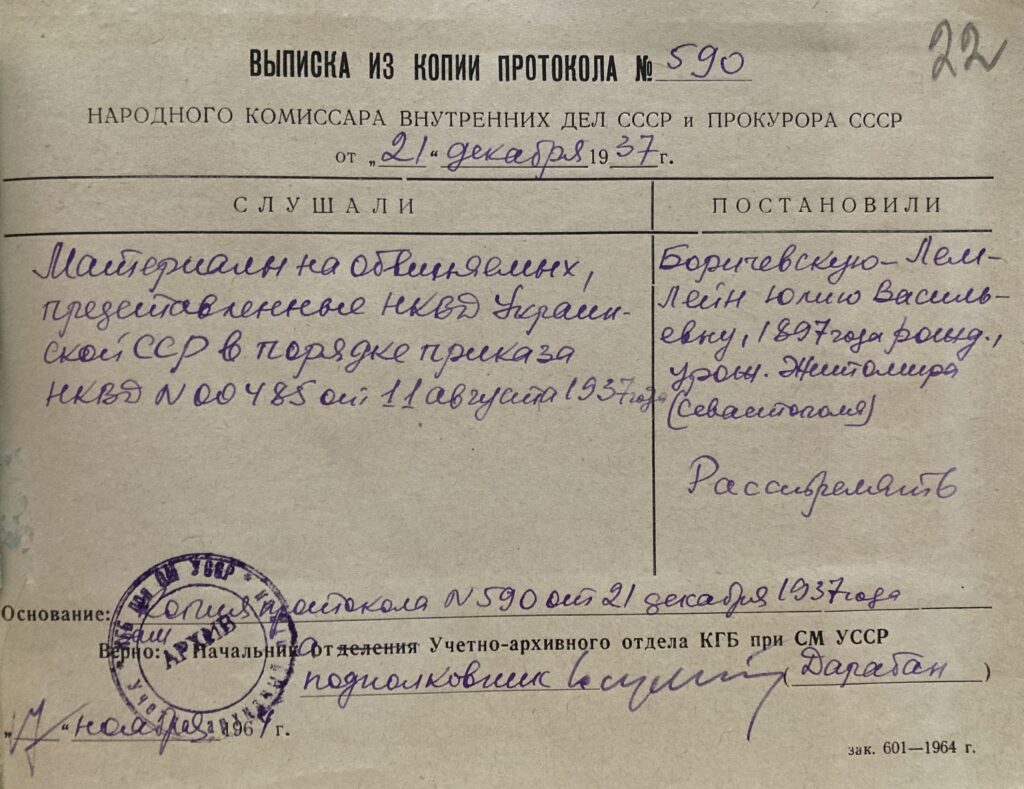 22
ВЫПИСКА ИЗ КОПИИ ПРОТОКОЛА № 590
НАРОДНОГО КОМИССАРА ВНУТРЕННИХ ДЕЛ СССР и ПРОКУРОРА СССР
от „21" декабря 1937 г.
СЛУШАЛИ
ПОСТАНОВИЛИ
Материалы на обвиняемых,
представленные НКВД Украин-
ской ССР в порядке приказа
НКВД N 00485 от 11 августа 1937 года
Боричевскую-Лем-
лейн Юлию Василь-
евну, 1897 года рожд.,
урож. Житомира
(Севастополя)
Расстрелять
Основание: Копия протокола N 590 от 21 декабря 1937 года
Верно: Начальник отделения Учетно-архивного отдела КГБ при СМ УССР
подполковник (Дарабан)
„17" ноября 1964 г.
КГБ при СМ УССР
АРХИВ
зак. 601—1964 г.